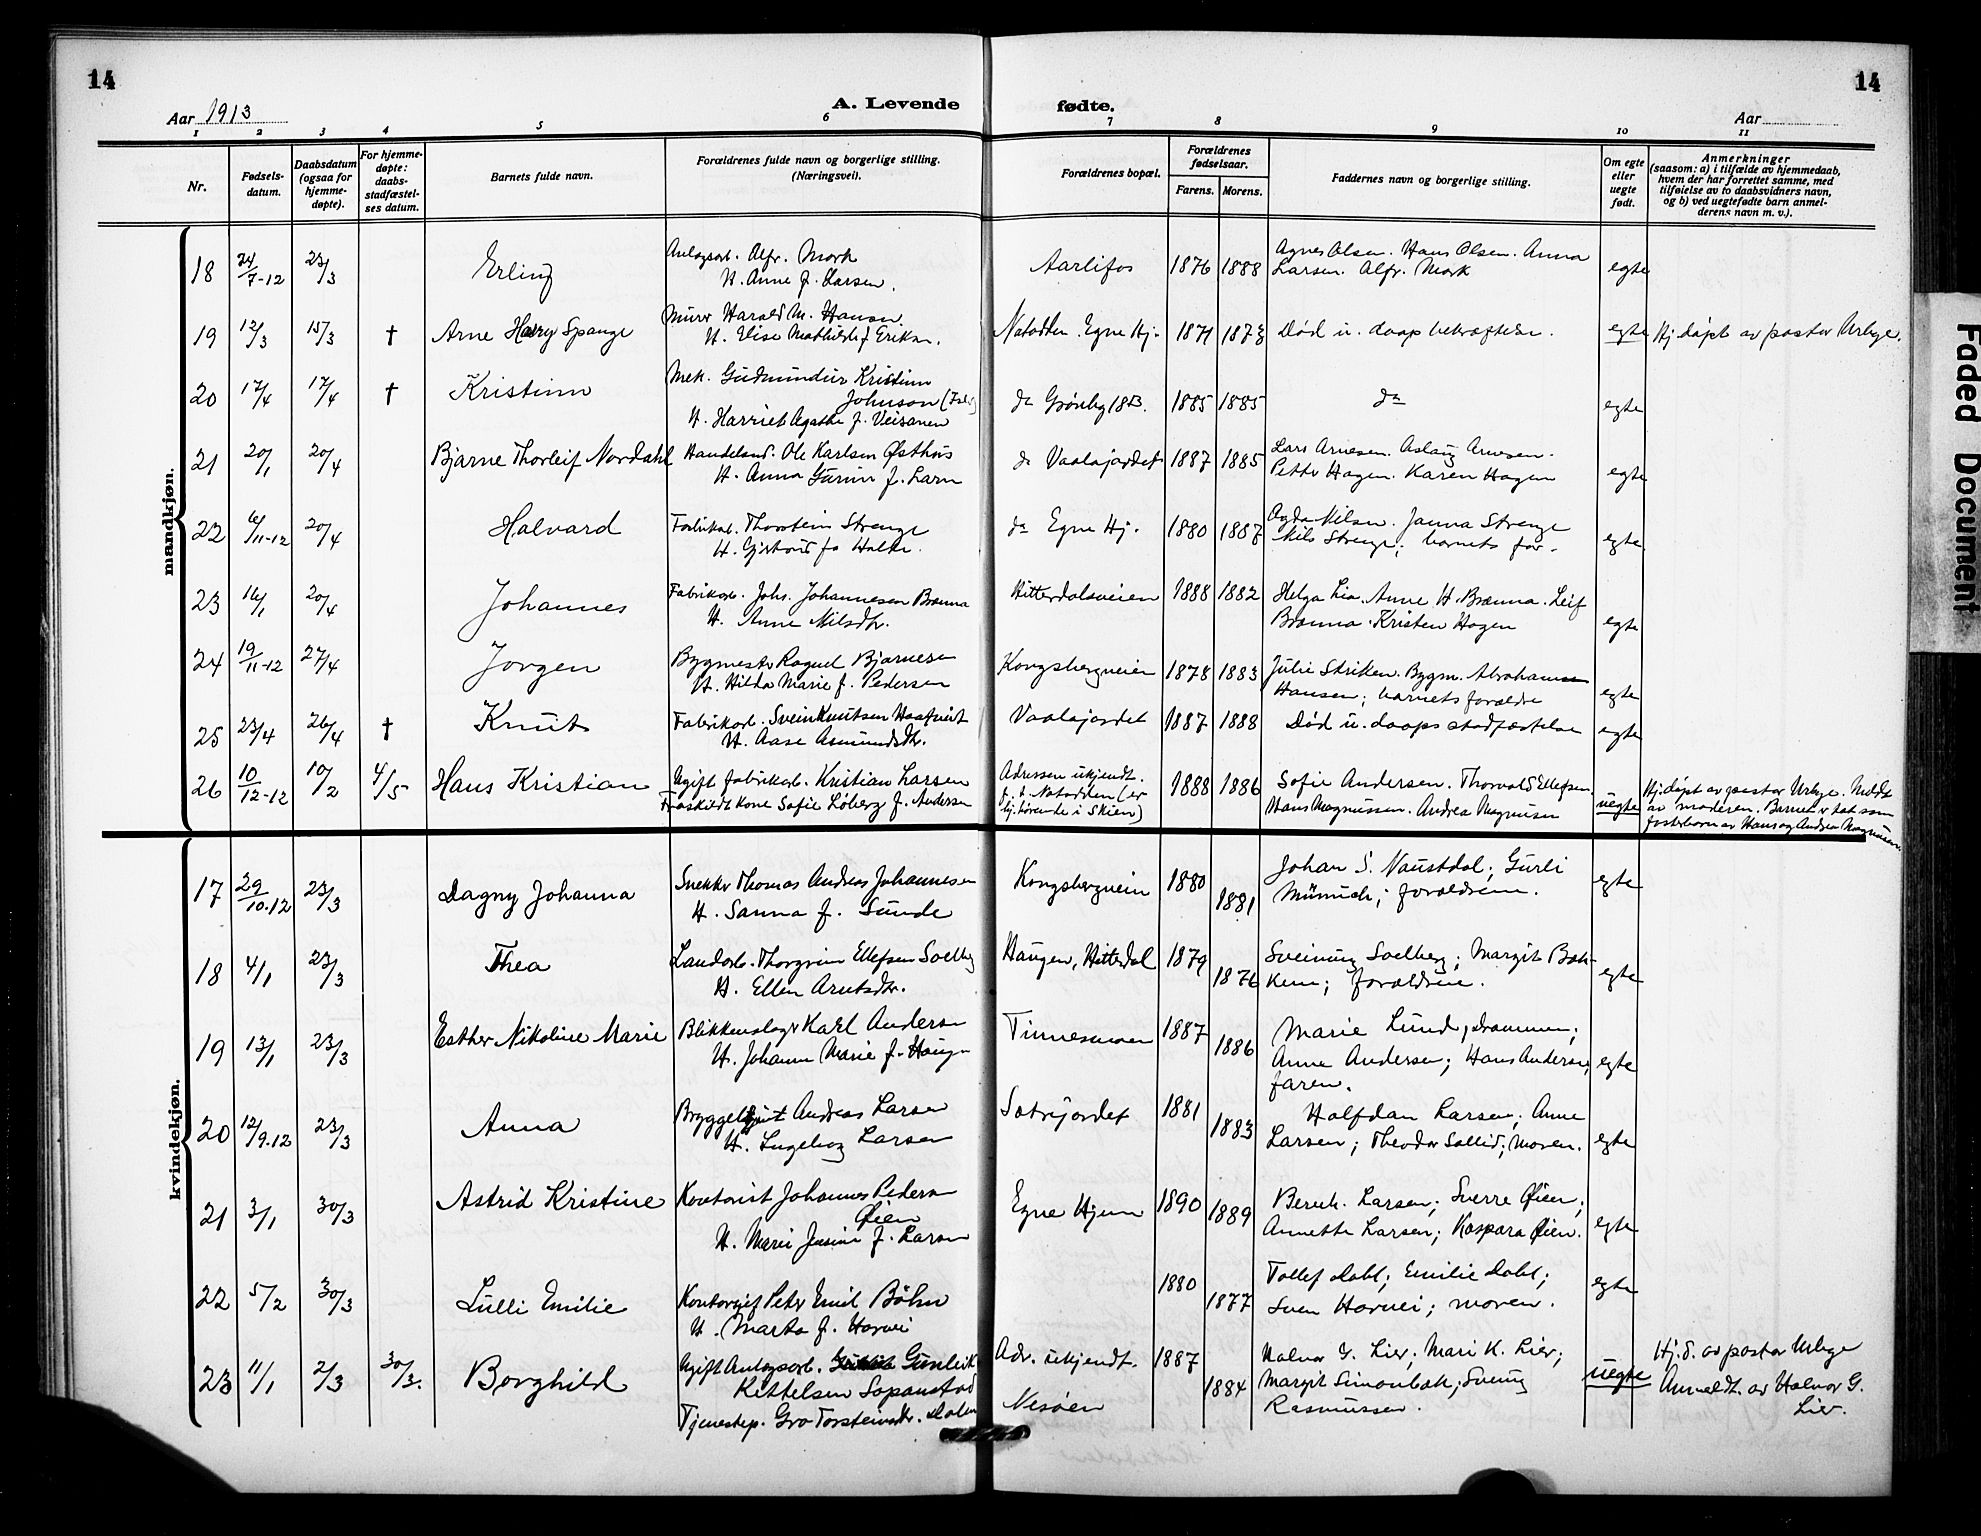 14
14
Aar 1913
A. Levende
fødte.
Aar
1 2 3 4 5 6 7 8 9 10 11
Nr.
Fødsels-
datum.
Daabsdatum
(ogsaa for
hjemme-
døpte).
For hjemme-
døpte:
daabs-
stadfæstel-
ses datum.
Barnets fulde navn.
Forældrenes fulde navn og borgerlige stilling.
(Næringsvei).
Forældrenes bopæl.
Forældrenes
fødselsaar.
Farens. Morens.
Faddernes navn og borgerlige stilling.
Om egte
eller
uegte
født.
Anmerkninger
(saasom: a) i tilfælde av hjemmedaab,
hvem der har forrettet samme, med
tilføielse av to daabsvidners navn,
og b) ved uegtefødte barn anmel-
derens navn m. v.).
mandkjøn.
18 24/7-12 23/3 Erling
Anlægsarb. Alfr. Mork
H. Anne f. Larsen.
Aarlifos 1876 1888
Agnes Olsen. Hans Olsen. Anna
Larsen. Alfr. Mork
egte
19 12/3 15/3 † Arne Harry Spange
Murer Harald M. Hansen
H. Elise Mathilde f Eriksn.
Notodden. Egne Hj. 1871 1873
Død u. daaps bekræftelse.
egte
Hj. døpt av pastor Urbye.
20 17/4 17/4 † Kristinn
Mek. Gudmundur Kristinn
Johnson
H. Harriet Agathe f. Veisanen
do Grönbyg 18B. 1885 1885
do
egte
21 20/1 20/4 Bjarne Thorleif Nordahl
Handelsm. Ole Karlsen Østhus
H. Anna Gurine f. Larsn
do Vaalajordet 1887 1885
Lars Arnesen. Aslaug Arnesen.
Petter Hagen. Karen Hagen
egte
22 6/11-12 20/4 Halvard
Fabrikarb. Thorstein Strenge
H.
do Egne Hj. 1880 1887
Agda Nilsen. Janna Strenge
Nils Strenge; barnets far.
egte
23 16/1 20/4 Johannes
Fabrikarb. Johs. Johannesen Brænna
H. Anne Nilsdtr.
Hitterdalsveien 1888 1882
Helga Lia. Anne H. Brænna. Leif
Brænna. Kristen Hagen
egte
24 19/11-12 27/4 Jorgen
Bygmester Ragnd Bjarnesen
H. Hilda Marie f. Pedersen
Kongsbergveien 1878 1883
Julie Striken. Bygm. Abraham
Hansen; barnets forældre
egte
25 23/4 26/4 † Knut
Fabrikarb. Svein Knutsen Haatveit
H. Aase Asmundsdtr.
Vaalajordet 1887 1888
Død u. daaps stadfæstelse
egte
26 10/12-12 10/2 4/5 Hans Kristian
Ugift fabrikarb. Kristian Larsen
Fraskildt kone Sofie Löberg f. Andersen
Adressen ukjendt.
f. t. Notodden (er
hj.hörende i Skien)
1888 1886
Sofie Andersen. Thorvald Ellefsen.
Hans Magnussen. Andrea Magnusen
uegte
Hj. døpt av pastor Urbye. Meldt
av moderen. Barnet er tat som
fosterbarn av Hans og Andrea Magnusen.
kvindekjøn.
17 29/10.12 23/3 Dagny Johanna
Snekker Thomas Andreas Johannesen
H. Sanna f. Sunde
Kongsbergveien 1880 1881
Johan S. Naustdal; Gurli
Münnich; forældrene.
egte
18 4/1 23/3 Thea
Landarb. Thorgrim Ellefsen Solberg
H. Ellen Arntsdtr.
Haugen, Hitterdal 1879 1876
Sveinung Solberg; Margit Bak-
ken; forældrene.
egte
19 13/1 23/3 Esther Nikoline Marie
Blikkenslager Karl Andersen
H. Johanne Marie f. Haugen
Tinnesmoen 1887 1886
Marie Lund, Drammen;
Anne Andersen; Hans Andersen,
faren.
egte
20 12/9.12 23/3 Anna
Andreas Larsen
H. Ingeborg Larsen
Sætrejordet 1881 1883
Halfdan Larsen; Anne
Larsen; Theodor Sollid; moren.
egte
21 3/1 30/3 Astrid Kristine
Kontorist Johannes Pedersen
Øien
H. Marie f. Larsen
Egne Hjem 1890 1889
Bernh. Larsen; Sverre Øien;
Annette Larsen; Kaspara Øien.
egte
22 5/2 30/3 Lulli Emilie
Kontorsjef Peter Emil Böhn
H. Marta f. Horvei
1880 1877
Tollef Dahl; Emilie Dahl;
Sven Horvei; moren.
egte
23 11/1 2/3 30/3. Borghild
Ugift Anlægsarb. Gunleik
Kittelsen
Tjenestep. Gro Torsteinsdtr. Dalen
Adr. ukjendt.
Nesöen
1887 1884
Halvor G. Lier; Mari K. Lier;
Margit Simonbak; Sveinung
Rasmussen.
uegte
Hj. d. av pastor Urbye
Anmeldt. av Halvor G.
Lier.
Faded Document